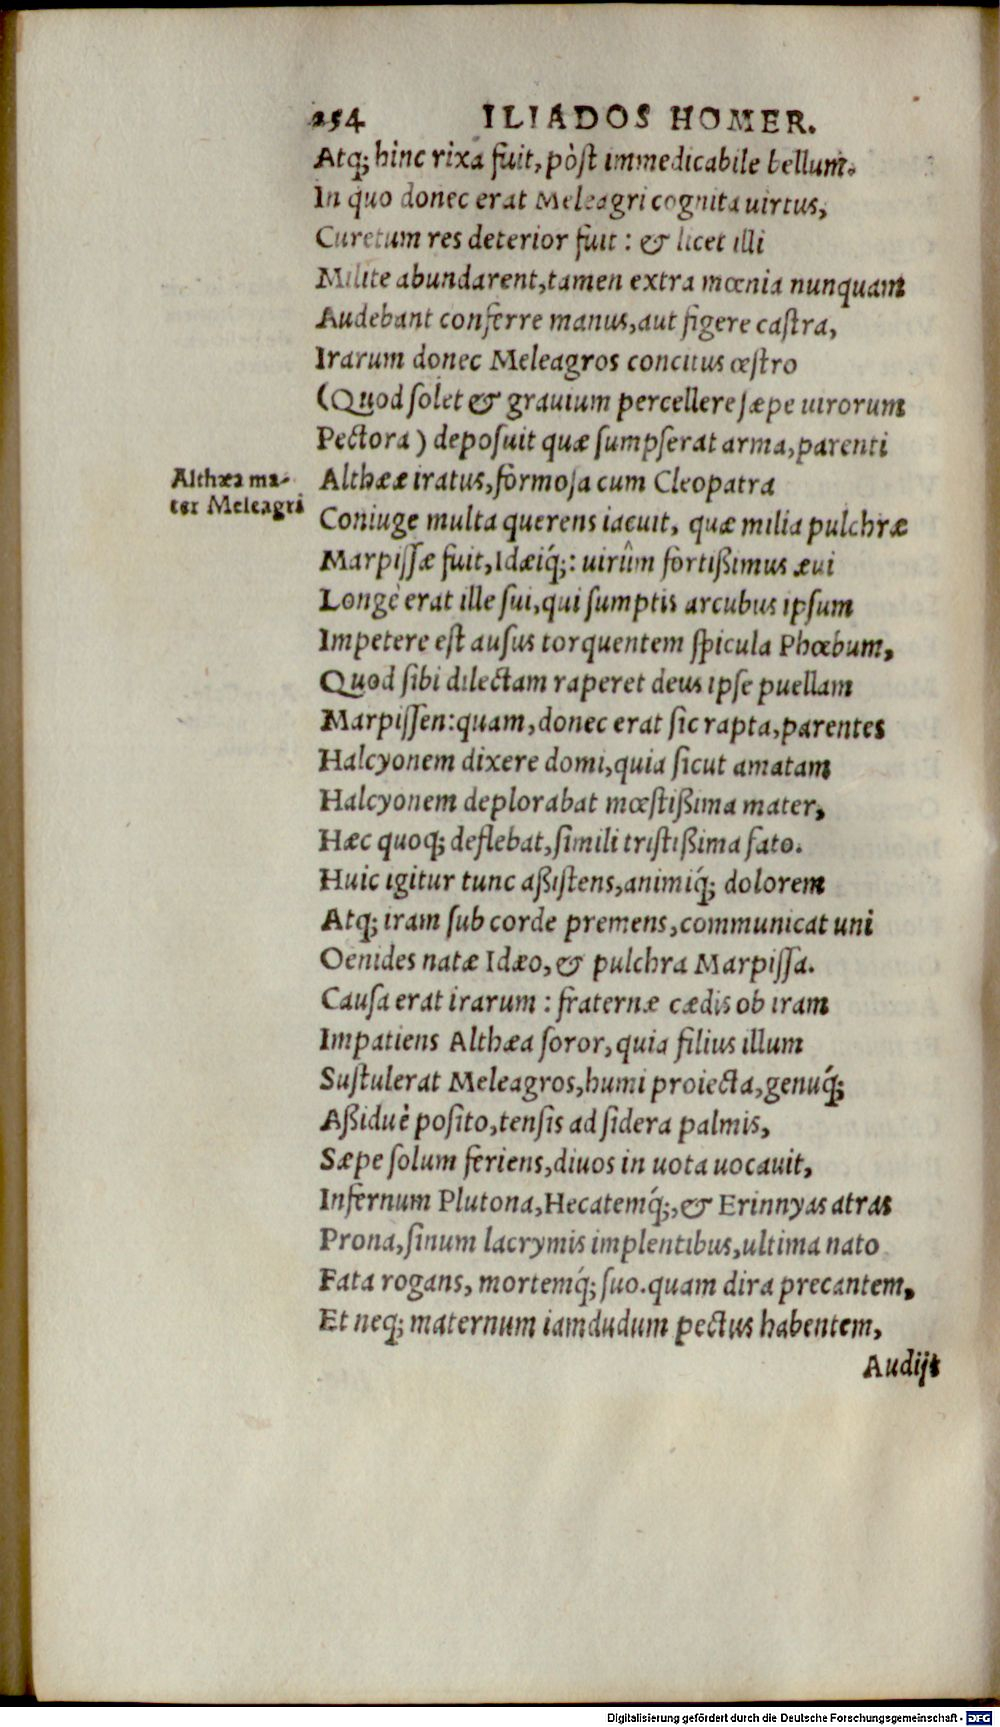 254 ILIADOS HOMER.
Atq; hinc rixa fuit, pòst immedicabile bellum.
In quo donec erat Meleagri cognita uirtus,
Curetum res deterior fuit: & licet illi
Milite abundarent, tamen extra mœnia nunquam
Audebant conferre manus, aut figere castra,
Irarum donec Meleagros concitus œstro
(Quod solet & grauium percellere sæpe uirorum
Pectora) deposuit quæ sumpserat arma, parenti
Althææ iratus, formosa cum Cleopatra
Althæa ma-
ter Meleagri
Coniuge multa querens iacuit, quæ milia pulchræ
Marpissæ fuit, Idæiq́;: uirûm fortißimus æui
Longè erat ille sui, qui sumptis arcubus ipsum
Impetere est ausus torquentem spicula Phœbum,
Quod sibi dilectam raperet deus ipse puellam
Marpissen: quam, donec erat sic rapta, parentes
Halcyonem dixere domi, quia sicut amatam
Halcyonem deplorabat mœstißima mater,
Hæc quoq; deflebat, simili tristißima fato.
Huic igitur tunc aßistens, animiq́; dolorem
Atq; iram sub corde premens, communicat uni
Oenides natæ Idæo, & pulchra Marpissa.
Causa erat irarum: fraternæ cædis ob iram
Impatiens Althæa soror, quia filius illum
Sustulerat Meleagros, humi proiecta, genuq́;
Aßiduè posito, tensis ad sidera palmis,
Sæpe solum feriens, diuos in uota uocauit,
Infernum Plutona, Hecatemq́;, & Erinnyas atras
Prona, sinum lacrymis implentibus, ultima nato
Fata rogans, mortemq́; suo. quam dira precantem,
Et neq; maternum iamdudum pectus habentem,
Audijt
Digitalisierung gefördert durch die Deutsche Forschungsgemeinschaft - DFG